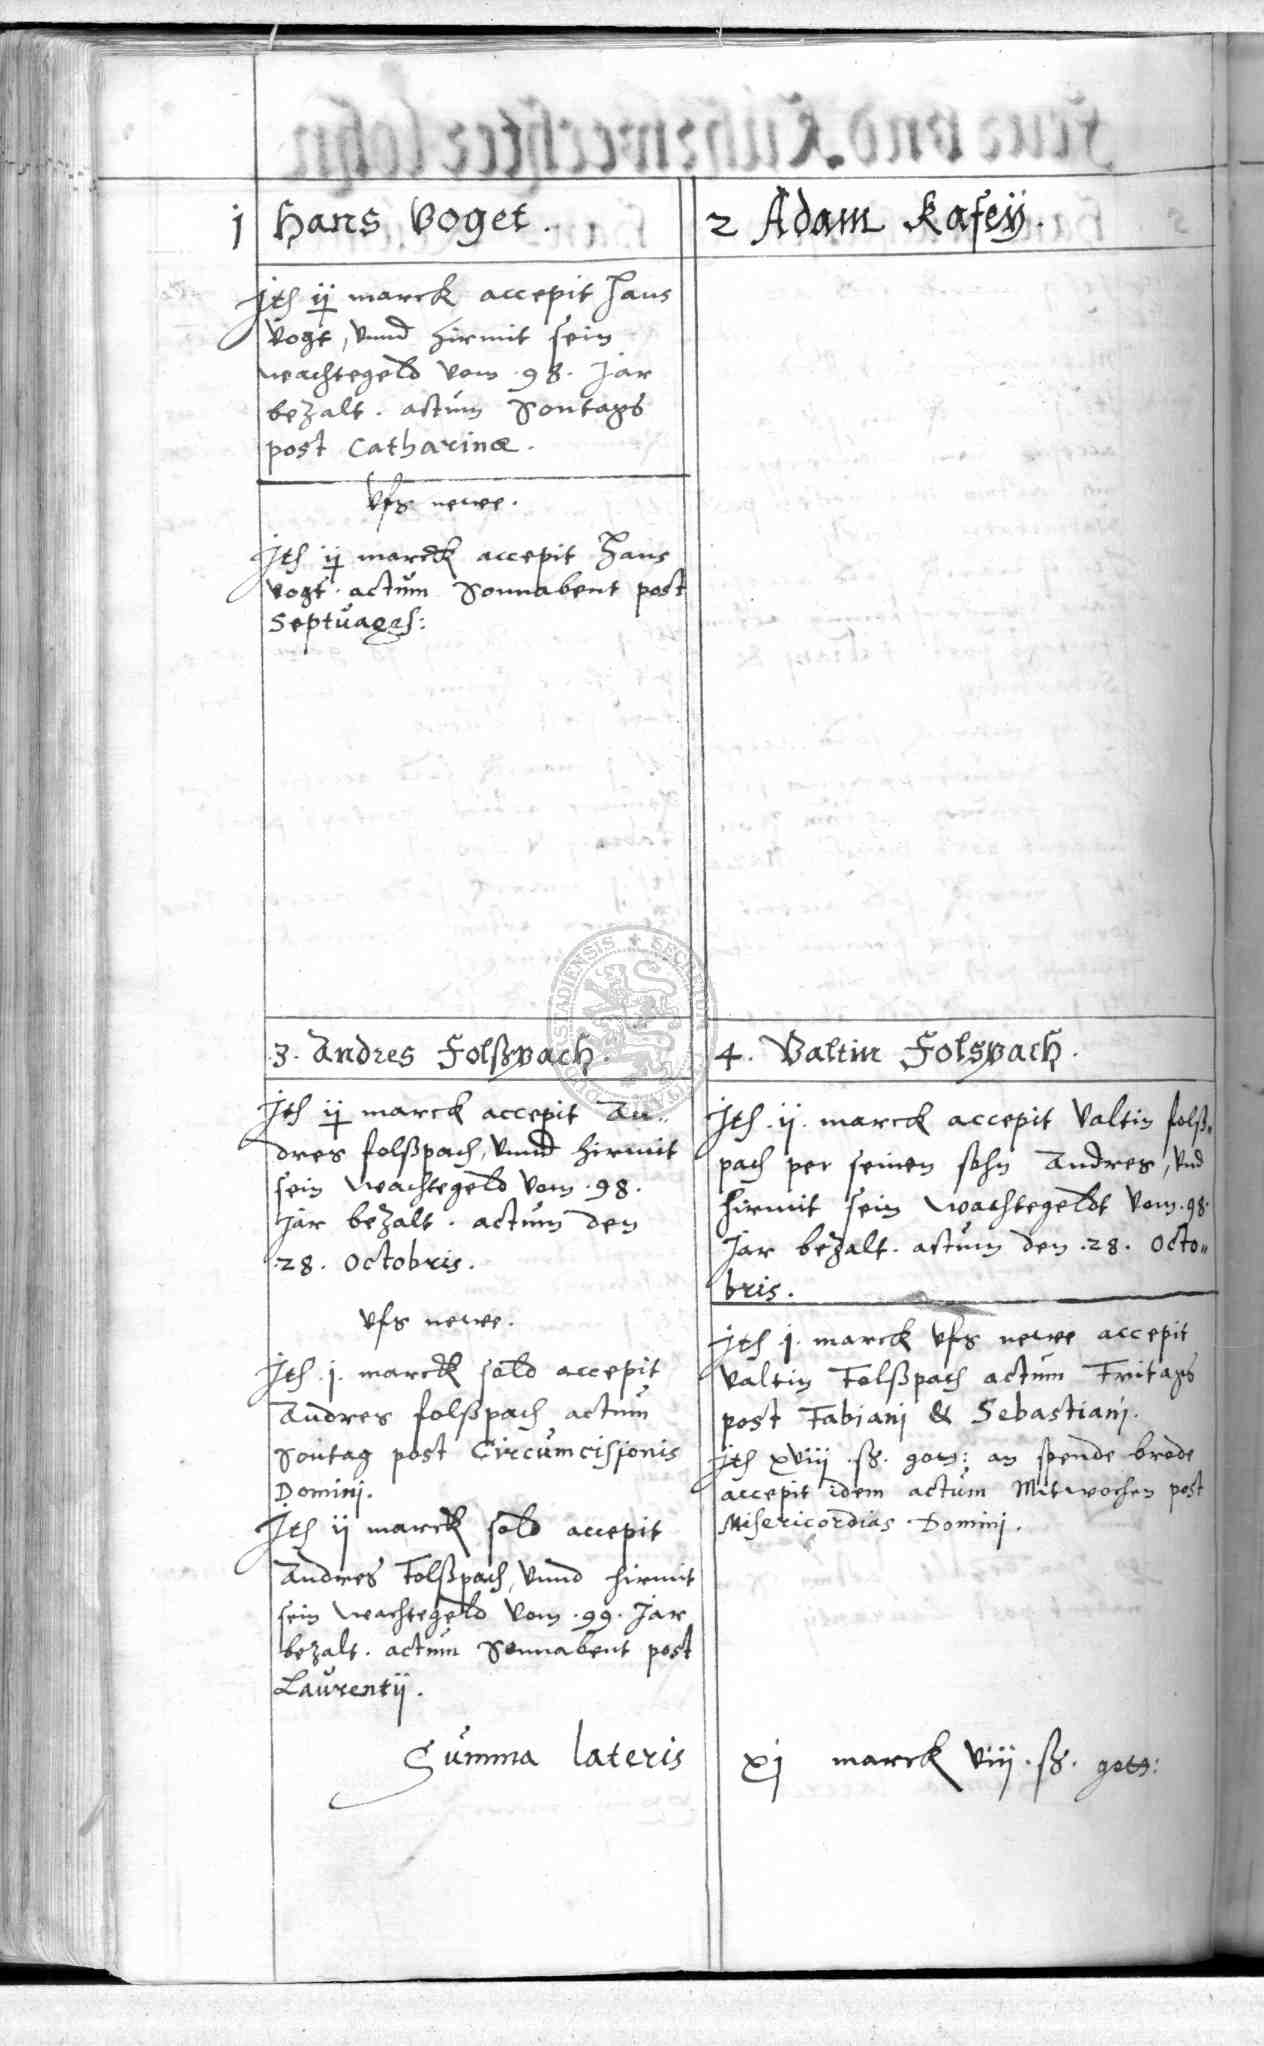 1 Hans Voget.
Jth ij marck accepit Hans
Vogt, vnnd hirmit sein
wachtegeld vom .98. Jar
bezalt. actum Sontags
post Catharinæ.
vfs newe.
Jth ij marck accepit Hans
Vogt. actum Sonnabent post
Septuages:
2 Adam Kafeÿ.
3. Andres Folßpach.
Jth ij marck accepit An„
dres folßpach, vnnd hirmit
sein wachtegeld vom .98.
Jar bezalt. actum den
.28. Octobris.
vfs newe.
Jth .j. marck sold accepit
Andres folßpach actum
Sontag post Circumcisionis
Domini.
Jth ij marck sold accepit
Andres Folßpach, vnnd hirmit
sein wachtegeld vom .99. Jar
bezalt. actum Sonnabent post
Laurentij.
4. Valtin Folspach.
Jth .ij. marck accepit Valtin folß„
pach per seinen sohn Andres, vnd
hirmit sein wachtegeldt vom .98.
Jar bezalt. actum den .28. Octo„
bris.
Jth .j. marck vfs newe accepit
Valtin Folßpach actum Fritags
post Fabiani & Sebastiani.
Jth xviij .ß. gow: an spende brode
accepit idem actum Mitwochen post
Misericordias Domini.
Summa lateris xj marck viij .ß. gow: